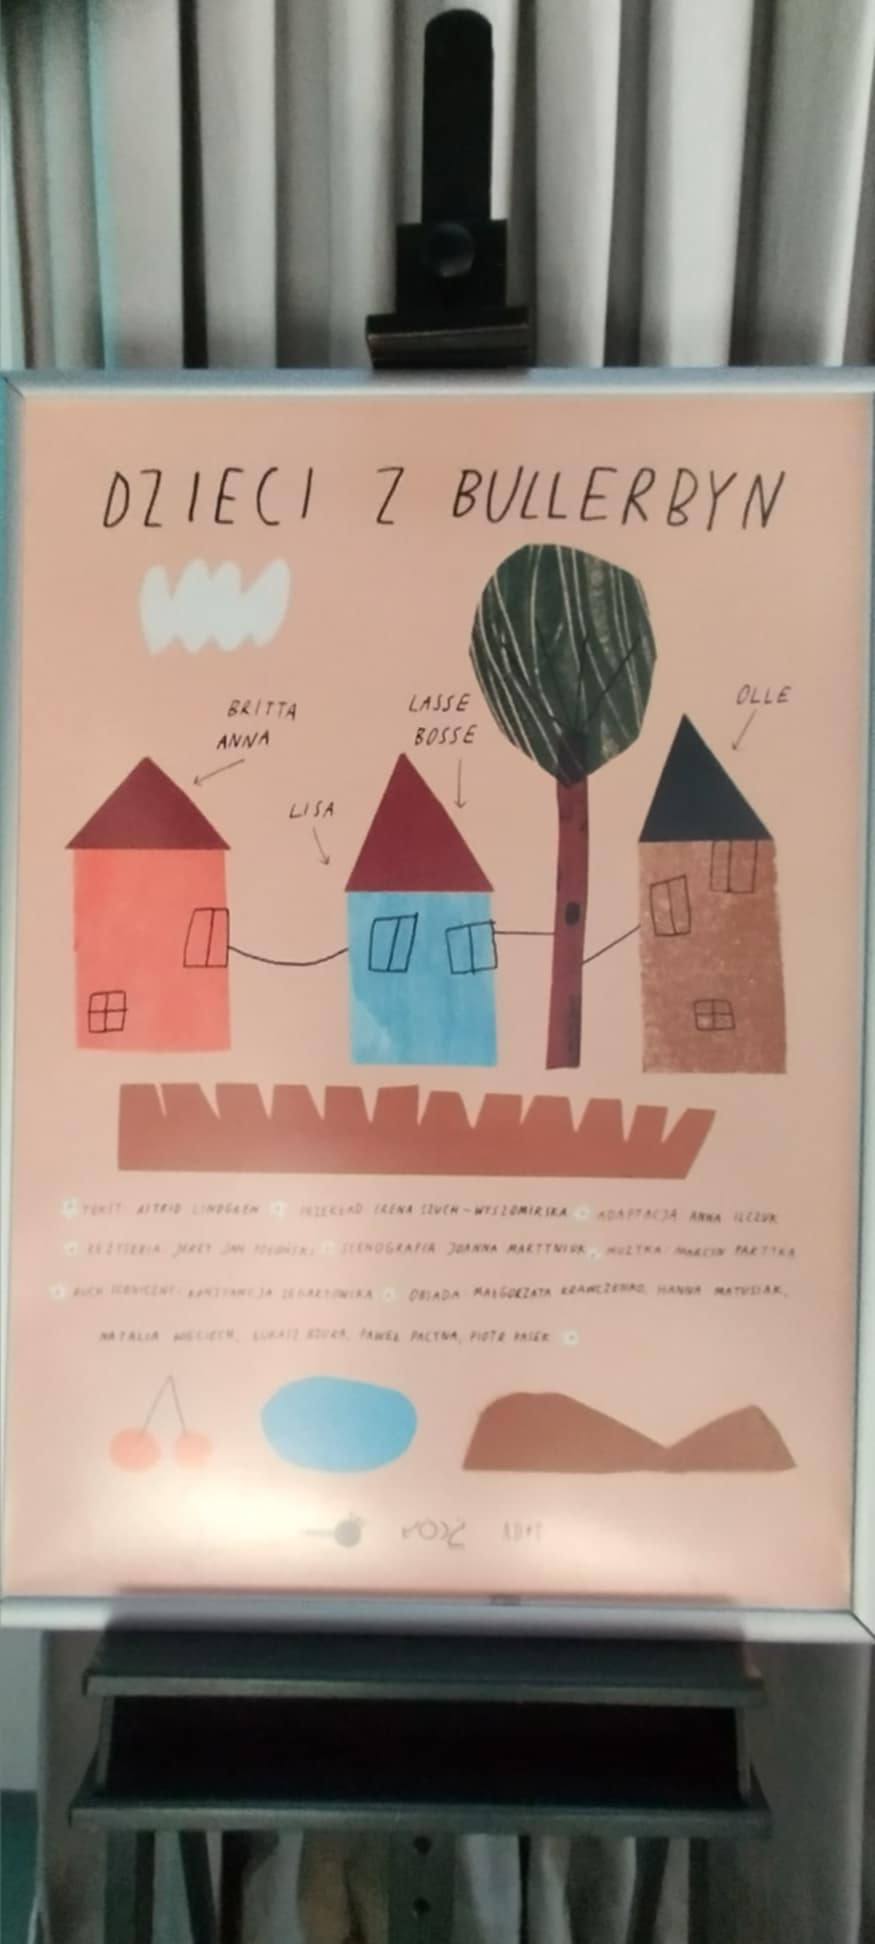 DZIECI Z BULLERBYN
BRITTA
ANNA
LISA
LASSE
BOSSE
OLLE
TEKST: ASTRID LINDGREN PRZEKŁAD IRENA SZUCH-WYSZOMIRSKA ADAPTACJA ANNA ILCZUK
REŻYSERIA: JERZY JAN SCENOGRAFIA JOANNA MARTYNIUK MUZYKA: MARCIN PARTYKA
RUCH SCENICZNY: KONSTANCJA OBSADA: MAŁGORZATA KRAWCZENKO, HANNA MATUSIAK,
NATALIA ŁUKASZ BZURA, PAWEŁ PACYNA, PIOTR PASEK